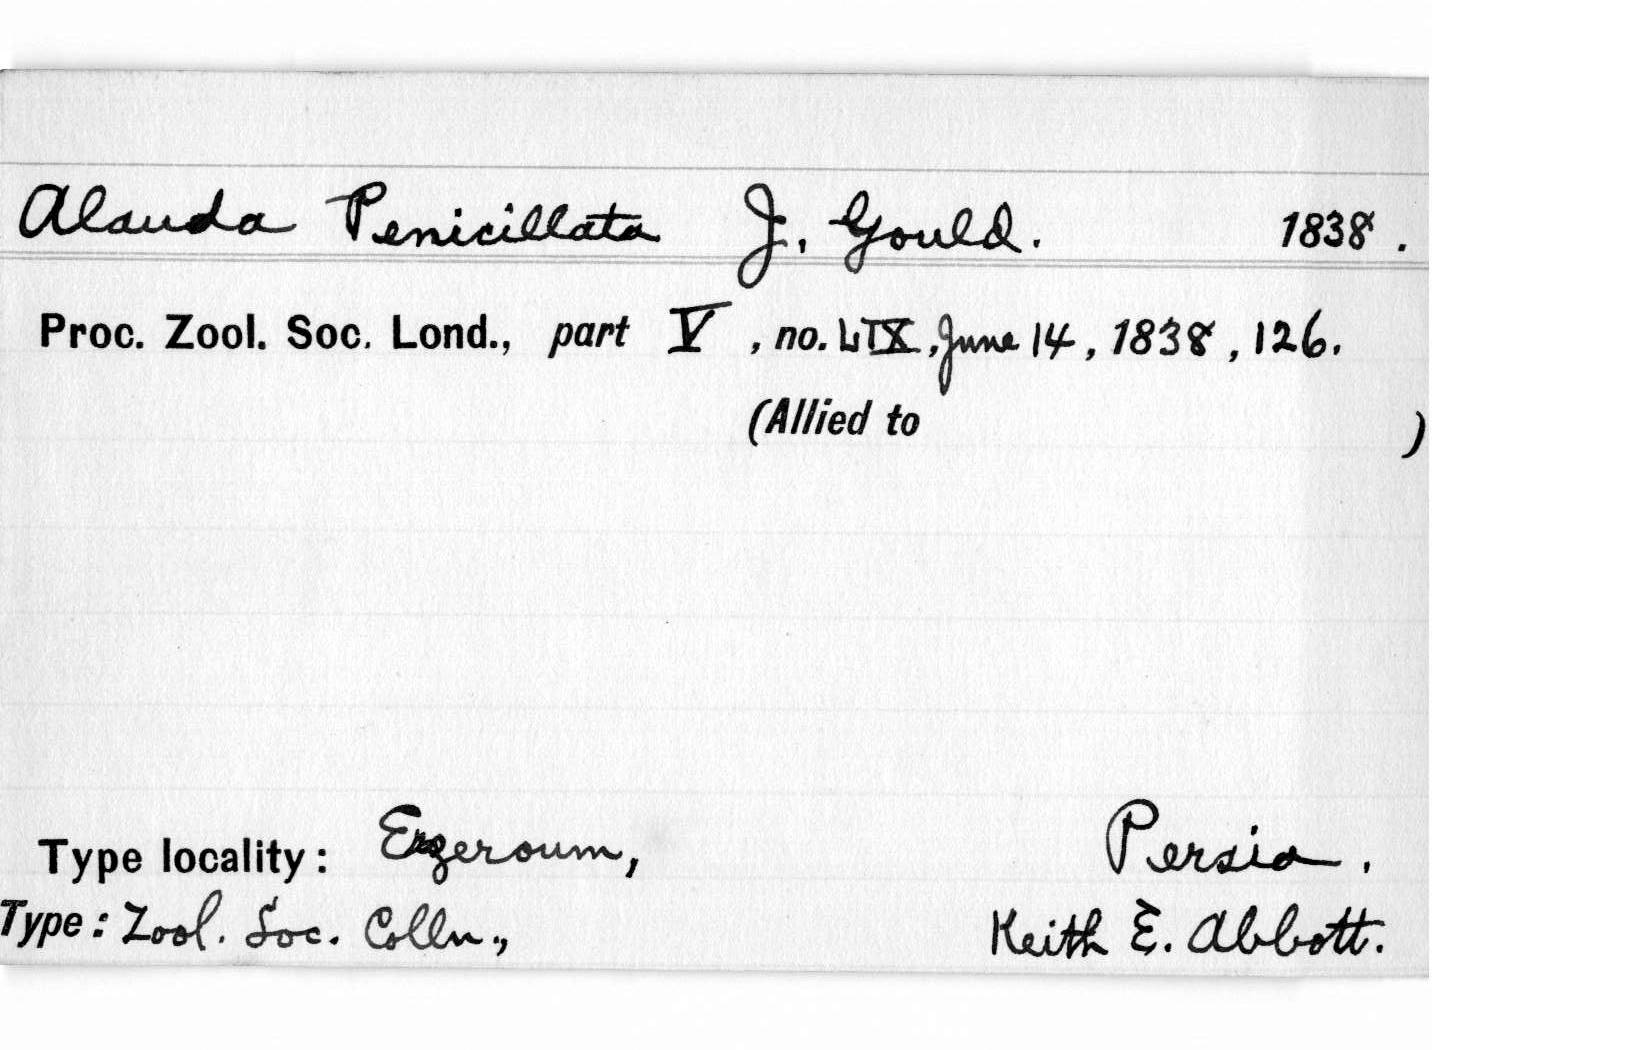 Alauda Penicillata J. Gould. 1838.
Proc. Zool. Soc. Lond., part V, no. LIX, June 14, 1838, 126.
(Allied to )
Type locality: Erzeroum, Persia.
Type: Zool. Soc. Colln., Keith E. Abbott.